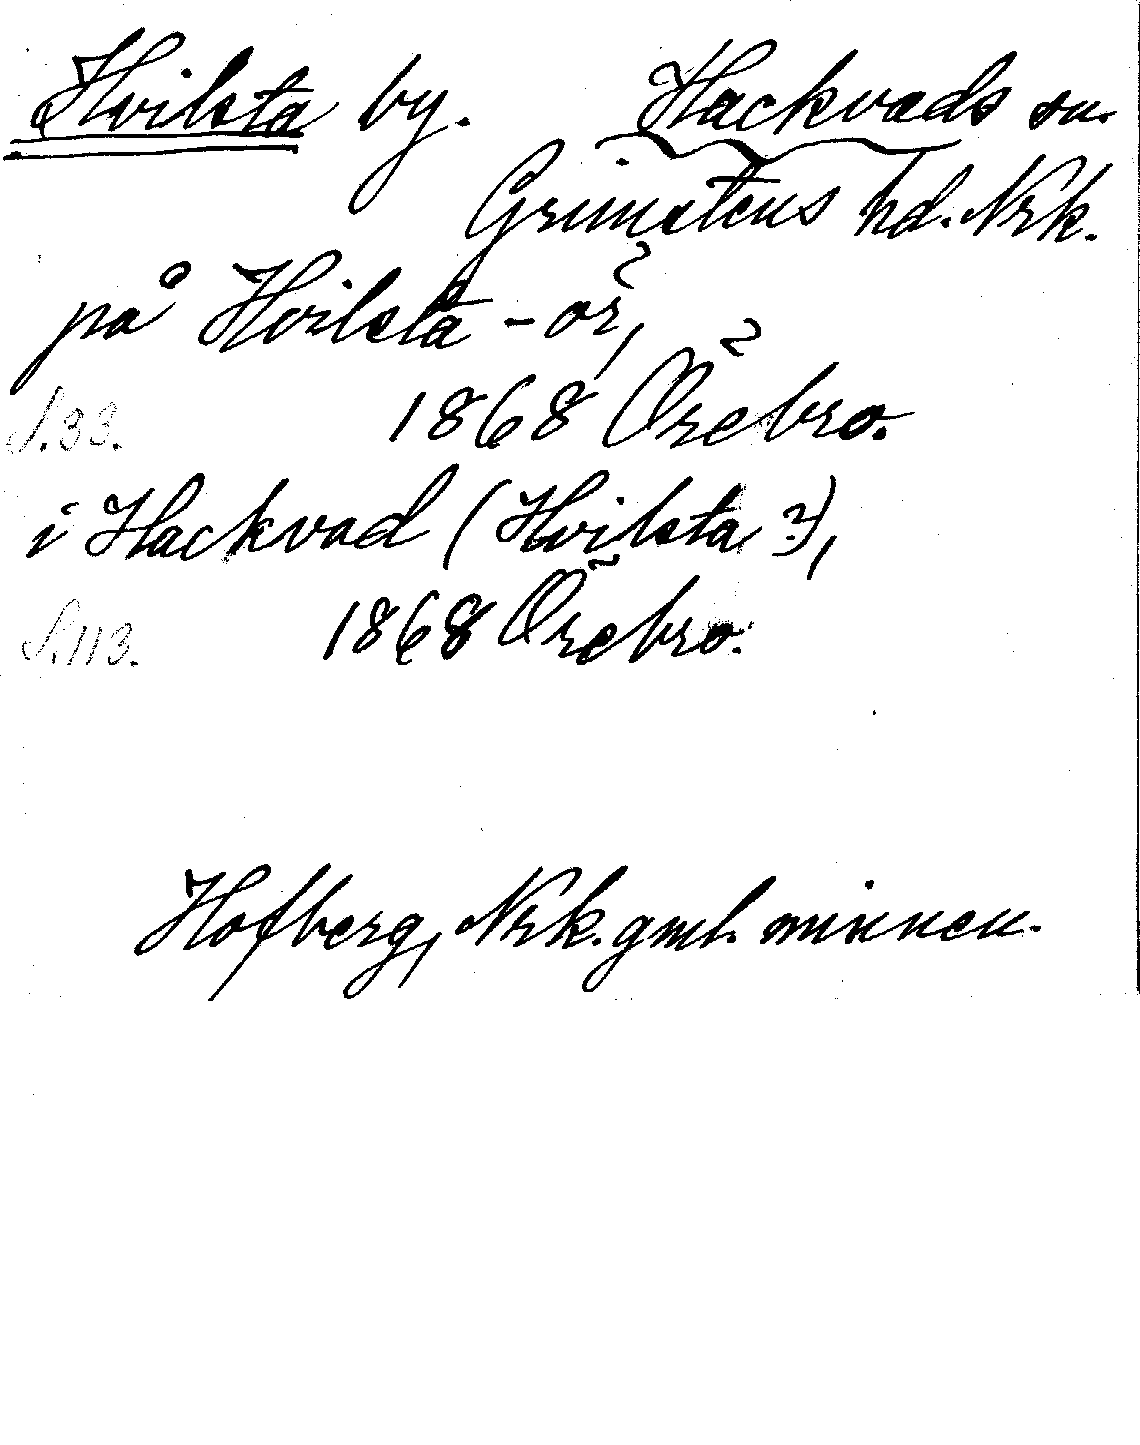 Hvilsta by. Hackvads sn.
Grimstens hd. Nrk.
på Hvilsta-ör,
S.33. 1868 Örebro.
i Hackvad (Hvilsta ?),
S.113. 1868 Örebro.
Hofberg, Nrk. gml. minnen.